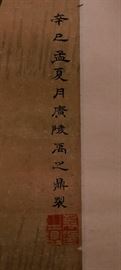 辛巳孟夏月廣陵禹之鼎製